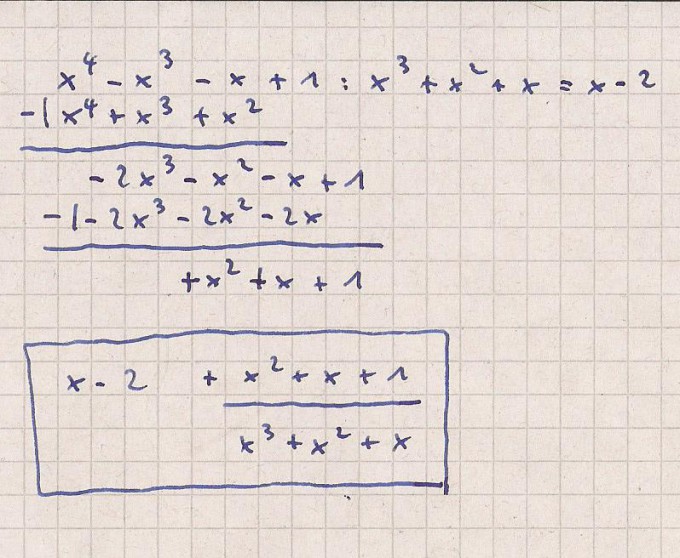 x⁴ - x³ - x + 1 : x³ + x² + x = x - 2
-| x⁴ + x³ + x²
- 2x³ - x² - x + 1
-| - 2x³ - 2x² - 2x
+ x² + x + 1
x - 2 + x² + x + 1
x³ + x² + x